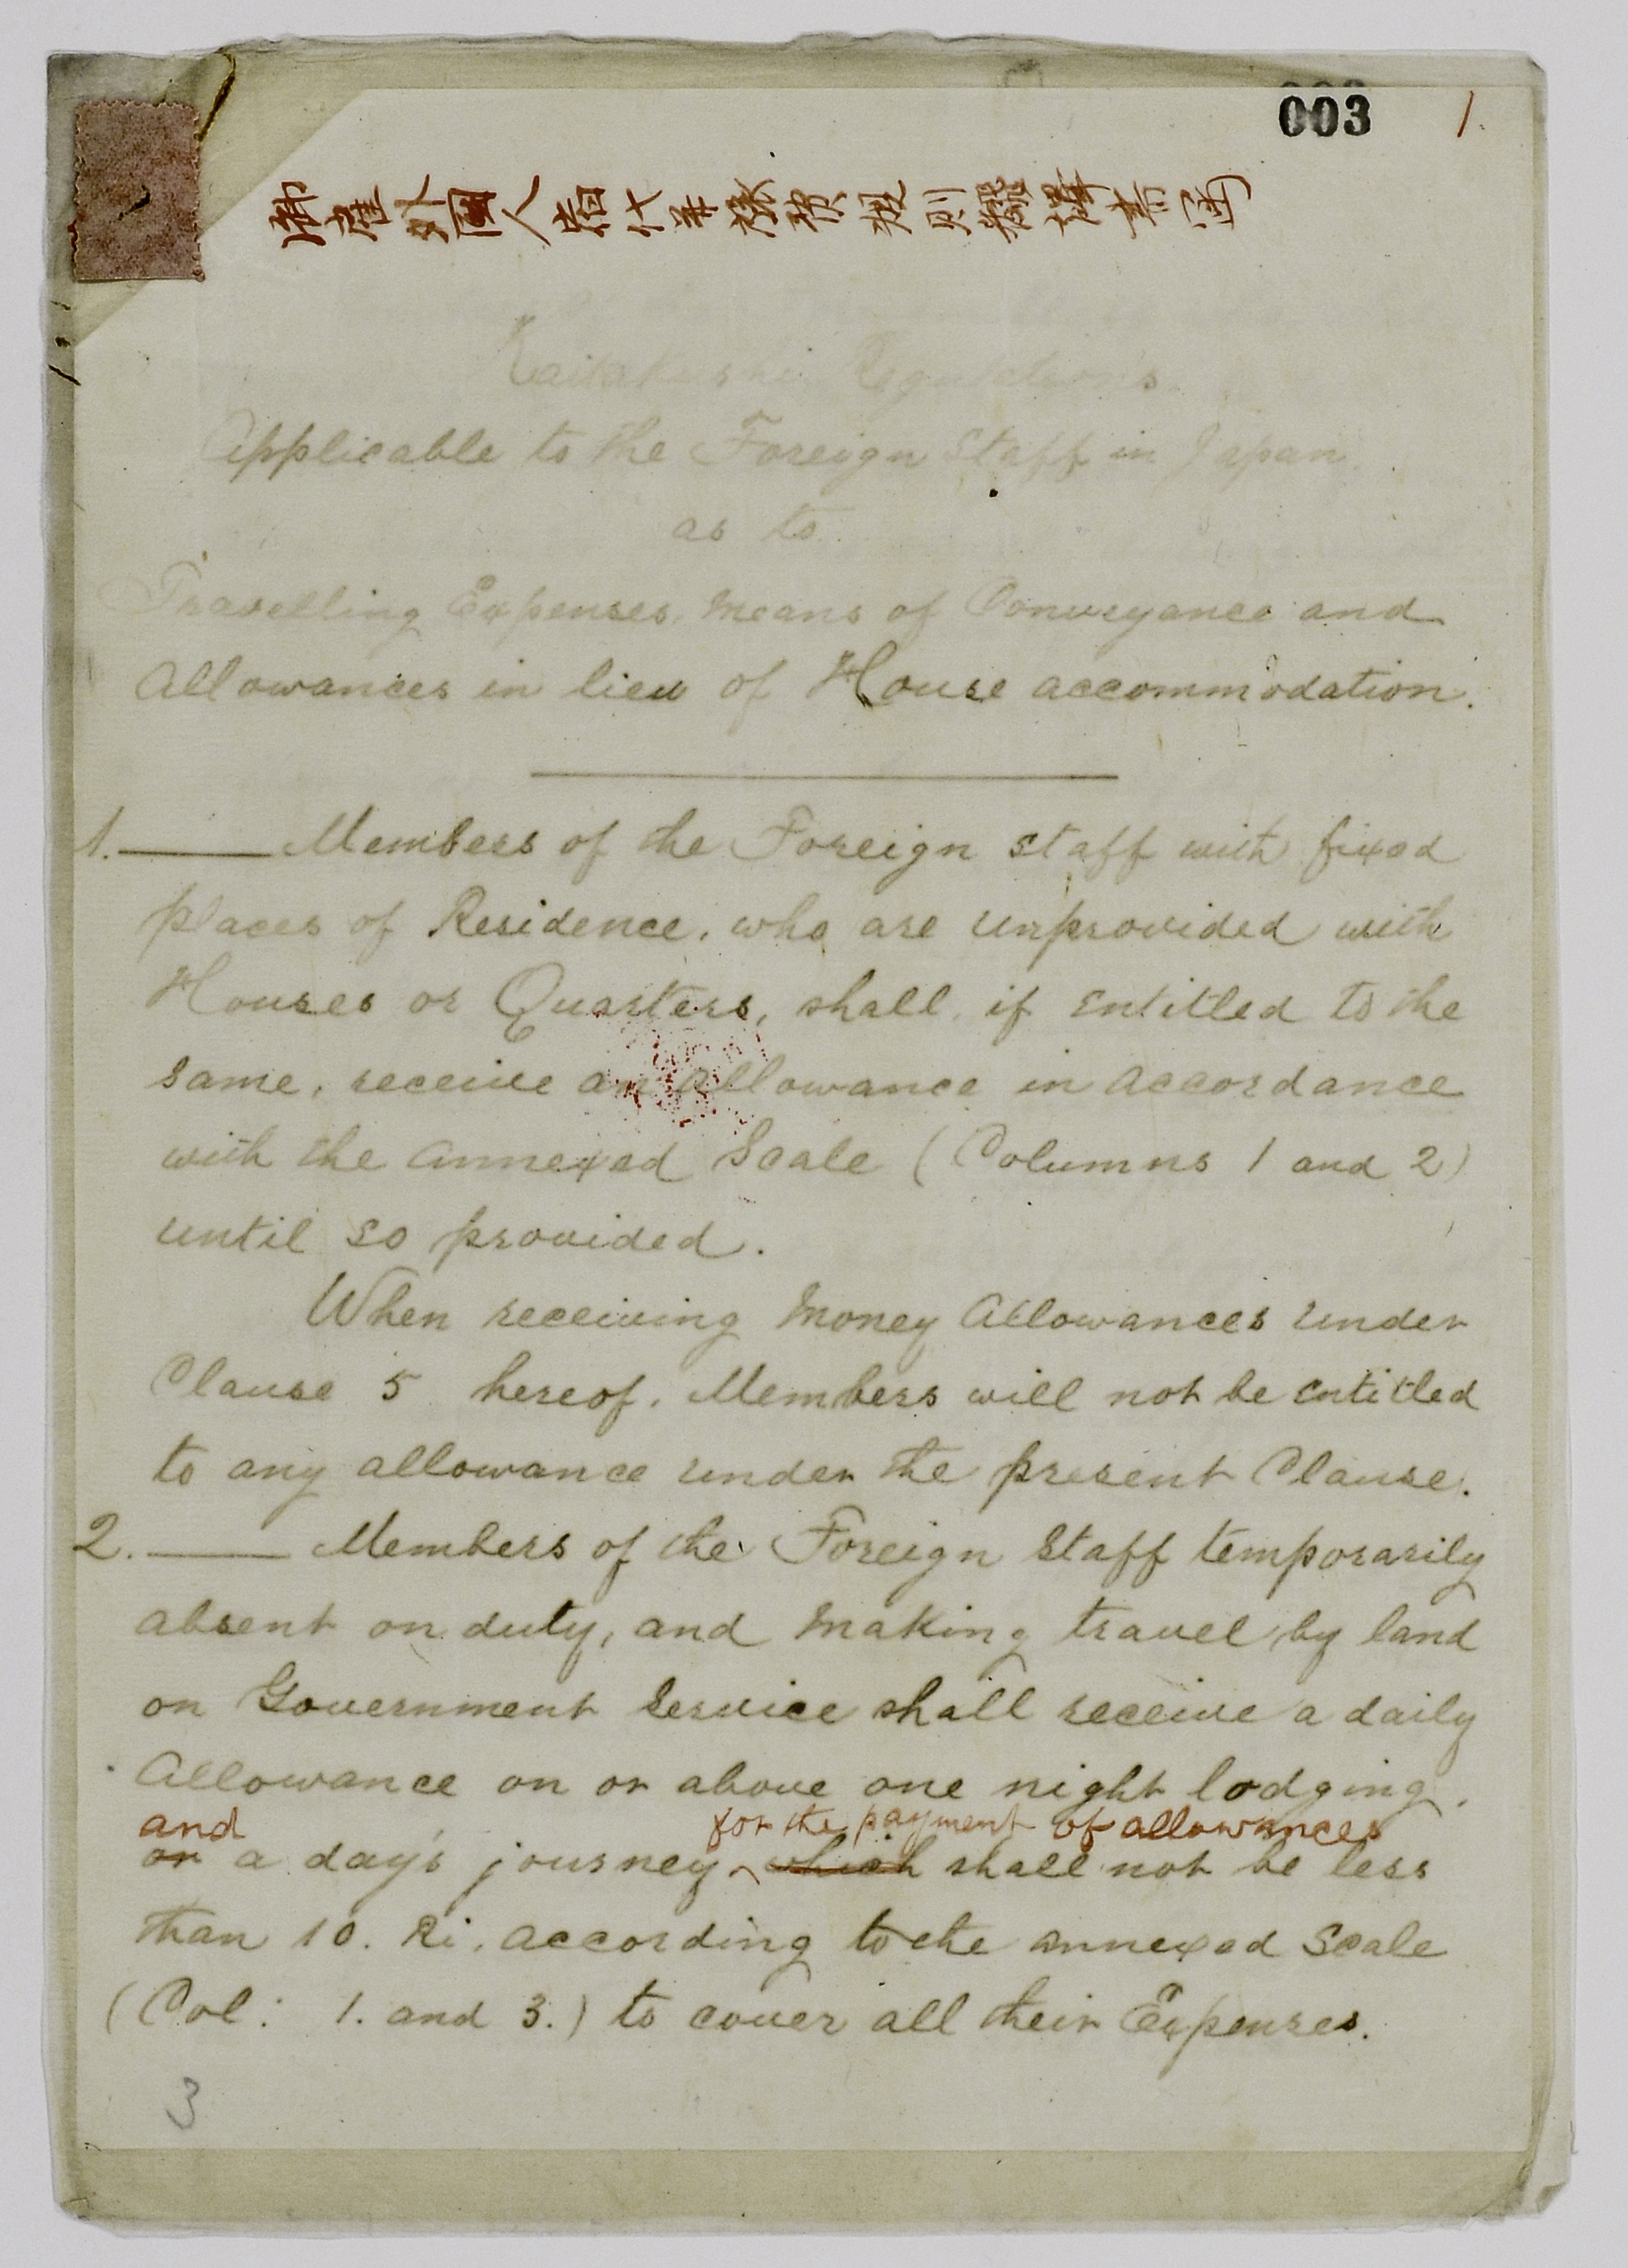 003 1.
外國人
Kaitakushi Regulations
Applicable to the Foreign Staff in Japan.
as to
Travelling Expenses, Means of Conveyance and
Allowances in lieu of House accommodation.
1. Members of the Foreign Staff with fixed
places of Residence, who are unprovided with
Houses or Quarters, shall, if entitled to the
same, receive an Allowance in accordance
with the annexed Scale (Columns 1 and 2)
until so provided.
When receiving Money Allowances under
Clause 5 hereof, Members will not be entitled
to any allowance under the present Clause.
2. Members of the Foreign Staff temporarily
absent on duty, and making travel by land
on Government Service shall receive a daily
Allowance on or above one night lodging,
and for the payment of allowances
or a day's journey which shall not be less
than 10. Ri. according to the annexed Scale
(Col: 1. and 3.) to cover all their Expenses.
3